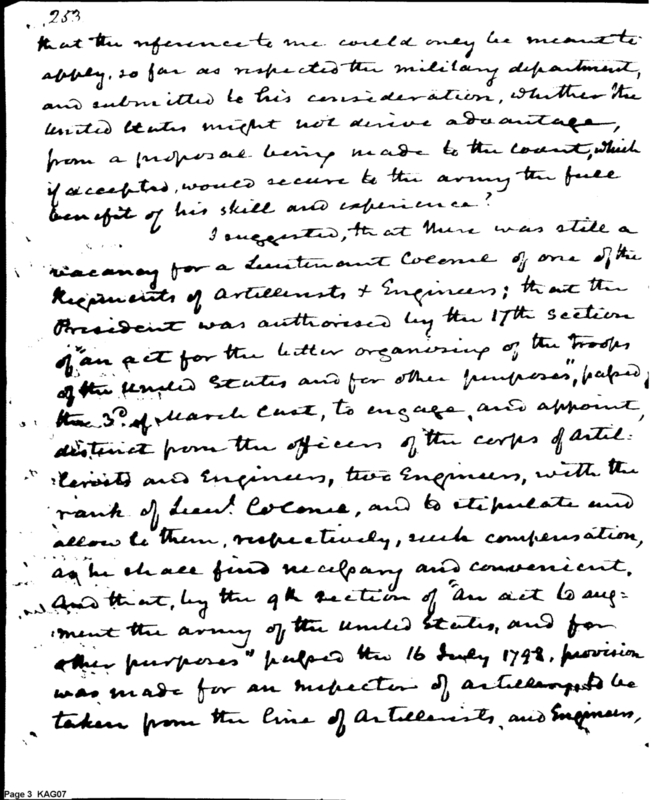 253
that the reference to me could only be meant to
apply, so far as respected the military department,
and submitted to his consideration, whether the
United States might not derive advantage,
from a proposal being made to the Count, which
if accepted, would secure to the army the full
benefit of his skill and experience?
I suggested, that there was still a
vacancy for a Lieutenant Colonel of one of the
Regiments of Artillerists & Engineers; that the
President was authorised by the 17th section
of "an act for the better organising of the troops
of the United States and for other purposes", passed
the 3d. of March last, to engage, and appoint,
distinct from the officers of the corps of Artil:
lerists and Engineers, two Engineers, with the
rank of Lieut. Colonel, and to stipulate and
allow to them, respectively, such compensation,
as he shall find necessary and convenient.
And that, by the 9th section of "an act to aug=
ment the army of the United States, and for
other purposes" passed the 16 July 1798, provision
was made for an inspector of artillery, to be
taken from the line of Artillerists and Engineers,
Page 3 KAG07